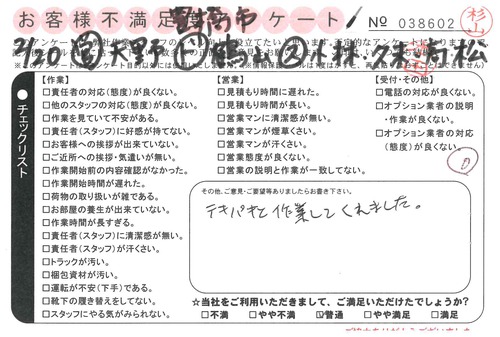 お客様不満足度アンケート
No 038602
杉山
●チェックリスト
【作業】
□責任者の対応(態度)が良くない。
□他のスタッフの対応(態度)が良くない。
□作業を見ていて不安がある。
□責任者(スタッフ)に好感が持てない。
□お客様への挨拶が出来ていない。
□ご近所への挨拶・気遣いが無い。
□作業開始前の内容確認がなかった。
□作業開始時間が遅れた。
□荷物の取り扱いが雑である。
□お部屋の養生が出来ていない。
□作業時間が長すぎる。
□責任者(スタッフ)に清潔感が無い。
□責任者(スタッフ)が汗くさい。
□トラックが汚い。
□梱包資材が汚い。
□運転が不安(下手)である。
□靴下の履き替えをしてない。
□スタッフにやる気がみられない。
【営業】
□見積もり時間に遅れた。
□見積もり時間が長い。
□営業マンに清潔感が無い。
□営業マンが煙草くさい。
□営業マンが汗くさい。
□営業態度が良くない。
□営業の説明と作業が一致してない。
【受付・その他】
□電話の対応が良くない。
□オプション業者の説明
・作業が良くない。
□オプション業者の対応
(態度)が良くない。
その他、ご意見・ご要望等ありましたらお書き下さい。
テキパキと作業してくれました。
☆当社をご利用いただきまして、ご満足いただけたでしょうか?
□不満 □やや不満 □普通 □やや満足 □満足